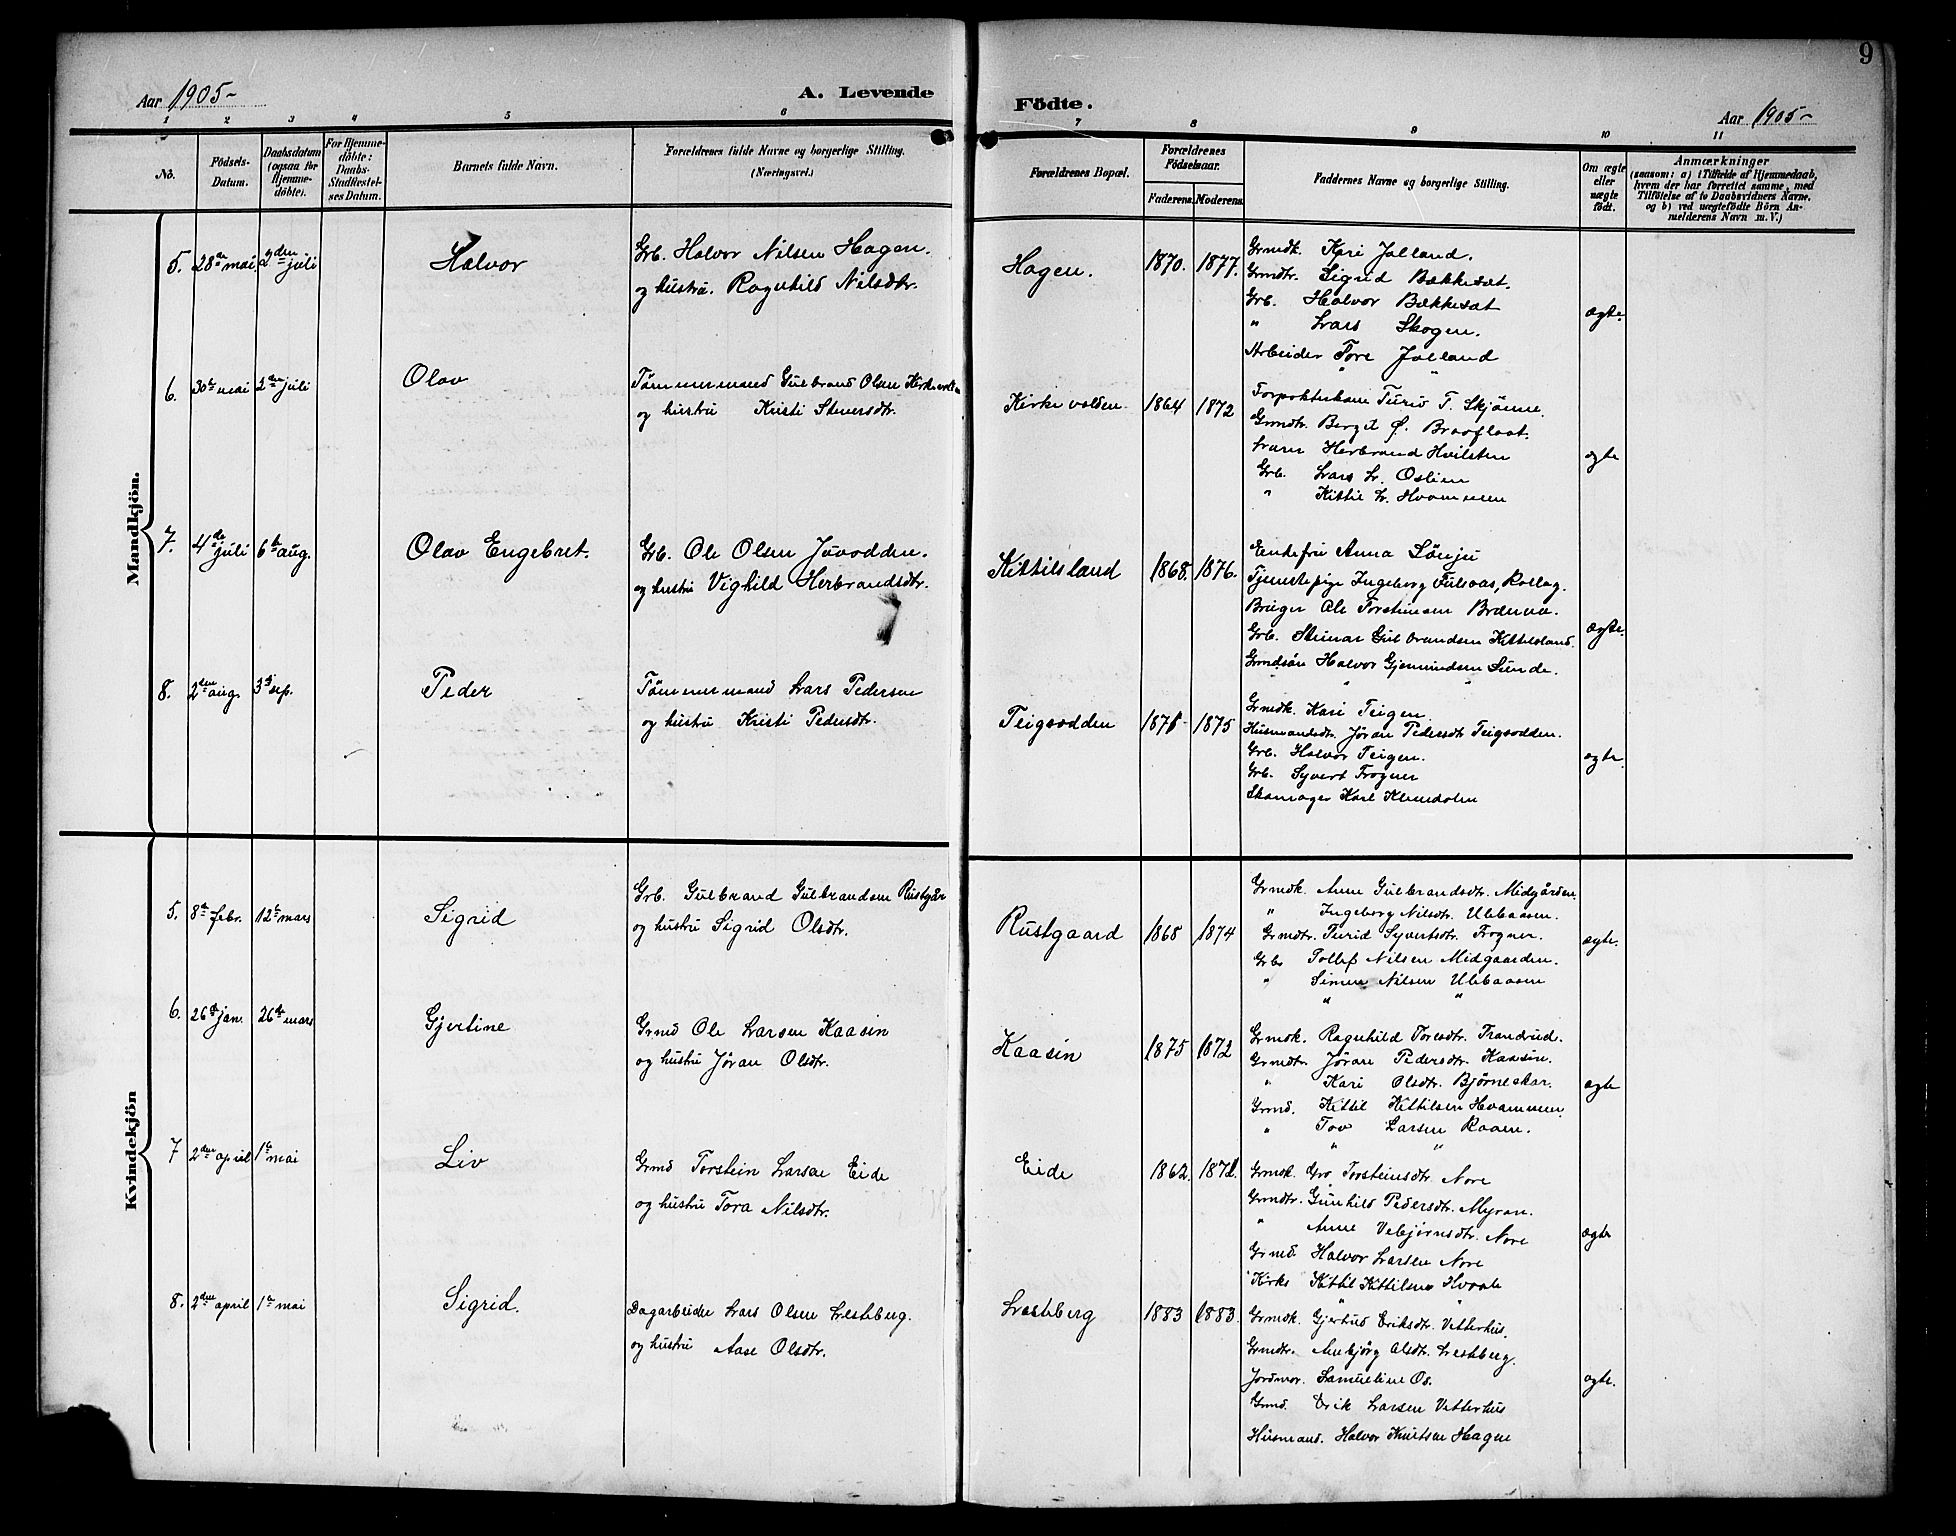 9
Aar 1905-
A. Levende
Födte.
Aar 1905-
1 2 3 4 5 6 7 8 9 10 11
No.
Födsels-Datum.
Daabsdatum (ogsaa for Hjemme-döbte).
For Hjemme-döbte: Daabs-Stadfæstel-ses Datum.
Barnets fulde Navn.
Forældrenes fulde Navne og borgerlige Stilling.
(Næringsvei.)
Forældrenes Bopæl.
Forældrenes Födselsaar.
Faderens. Moderens.
Faddernes Navne og borgerlige Stilling.
Om ægte eller uægte födt.
Anmærkninger
(saasom: a) i Tilfælde af Hjemmedaab,
hvem der har forrettet samme, med
Tilföielse af to Daabsvidners Navne,
og b) ved uægtefödte Börn An-
melderens Navn m. V.)
Mandkjön.
5. 28de mai 2den juli Halvor
Grb. Halvor Nilsen Hagen.
og hustru. Ragnhild Nilsdtr.
Hagen. 1870. 1877.
Grmdk. Kari Jolland.
Grmdtr. Sigrid Bækkesæt.
Grb. Halvor Bækkesæt
" Lars Skogen.
Arbeider Tore Jolland
ægte.
6. 30te mai 2den juli Olav
Tømmermand Gulbrand Olsen Kirkevolden
og hustru Kristi Steversdtr.
Kirkevolden. 1864 1872
Forpakterkone Turid T. Skjønne.
Grmdtr. Bergit O. Braaflaat.
Herbrand Hvilsten
Grb. Lars L. Oslien
" Kittil L. Hvammen
ægte
7. 4de juli 6te aug. Olav Engebret.
Grb. Ole Olsen Juvodden.
og hustru Vighild Herbrandsdtr.
Kittilsland 1868. 1876.
Enkefru Anna Lönju
Tjenestepige Ingeborg Fulsaas, Rollag.
Bruger Ole Torsteinsen Bræueva.
Grb. Steinar Gulbrandsen Kittilsland.
Grmdsön Halvor Gjermundsen Sunde.
ægte.
8. 2den aug. 3die sep. Peder
Tømmermand Lars Pedersen
og hustru Kristi Pedersdtr.
Teigsodden 1871- 1875
Grmdk. Kari Teigen
Husmandsdtr. Jøran Pedersdtr Teigsodden.
Grb. Halvor Teigen.
Grb. Syvert Frogner
Skomager Karl
ægte.
Kvindekjön
5. 8de febr. 12te mars Sigrid
Grb. Gulbrand Gulbrandsen Rustgår
og hustru Sigrid Olsdtr.
Rustgaard 1868 1874
Grmdk. Anne Gulbrandsdtr. Midgården
" Ingeborg Nilsdtr. Ulebaasen.
Grmdtr. Turid Syvertsdtr. Frogner.
Grb. Tollef Nilsen Midgaarden.
" Simen Nilsen Ulebaasen
ægte.
6. 26de jan. 26de mars Gjertine
Grmd Ole Larsen Kaasin
og hustru Jøran Olsdtr.
Kaasin 1875 1872
Grmdk. Ragnhild Toresdtr. Trandrud.
Grmdtr. Jøran Pedersdtr. Kaasin.
" Kari Olsdtr. Bjørneskar.
Grmd. Kittil Kittilsen Hvammen.
" Tov Larsen Raaen.
ægte
7 2den april 1te mai Liv
Grmd Torstein Larsen Eide
og hustru Tora Nilsdtr.
Eide 1862. 1871.
Grmdk. Gro Torsteinsdtr. Nore
Grmdtr. Gunhild Pedersdtr. Myran.
" Anne Vebjørnsdtr. Nore
Grmd. Halvor Larsen Nore
Kirks Kittil Kittilsen Hvaale
ægte
8. 2den april 1te mai Sigrid.
Dagarbeider Lars Olsen Lesteberg.
og hustru Aase Olsdtr.
Lesteberg 1883 1883.
Grmdk. Gjertud Eriksdtr. Vetterhus.
Grmdtr. Anbjørg Olsdtr. Lesteberg.
Jordmor. Samueline Os.
Grmd. Erik Larsen Vetterhus
Husmand. Halvor Knutsen Hagen
ægte.